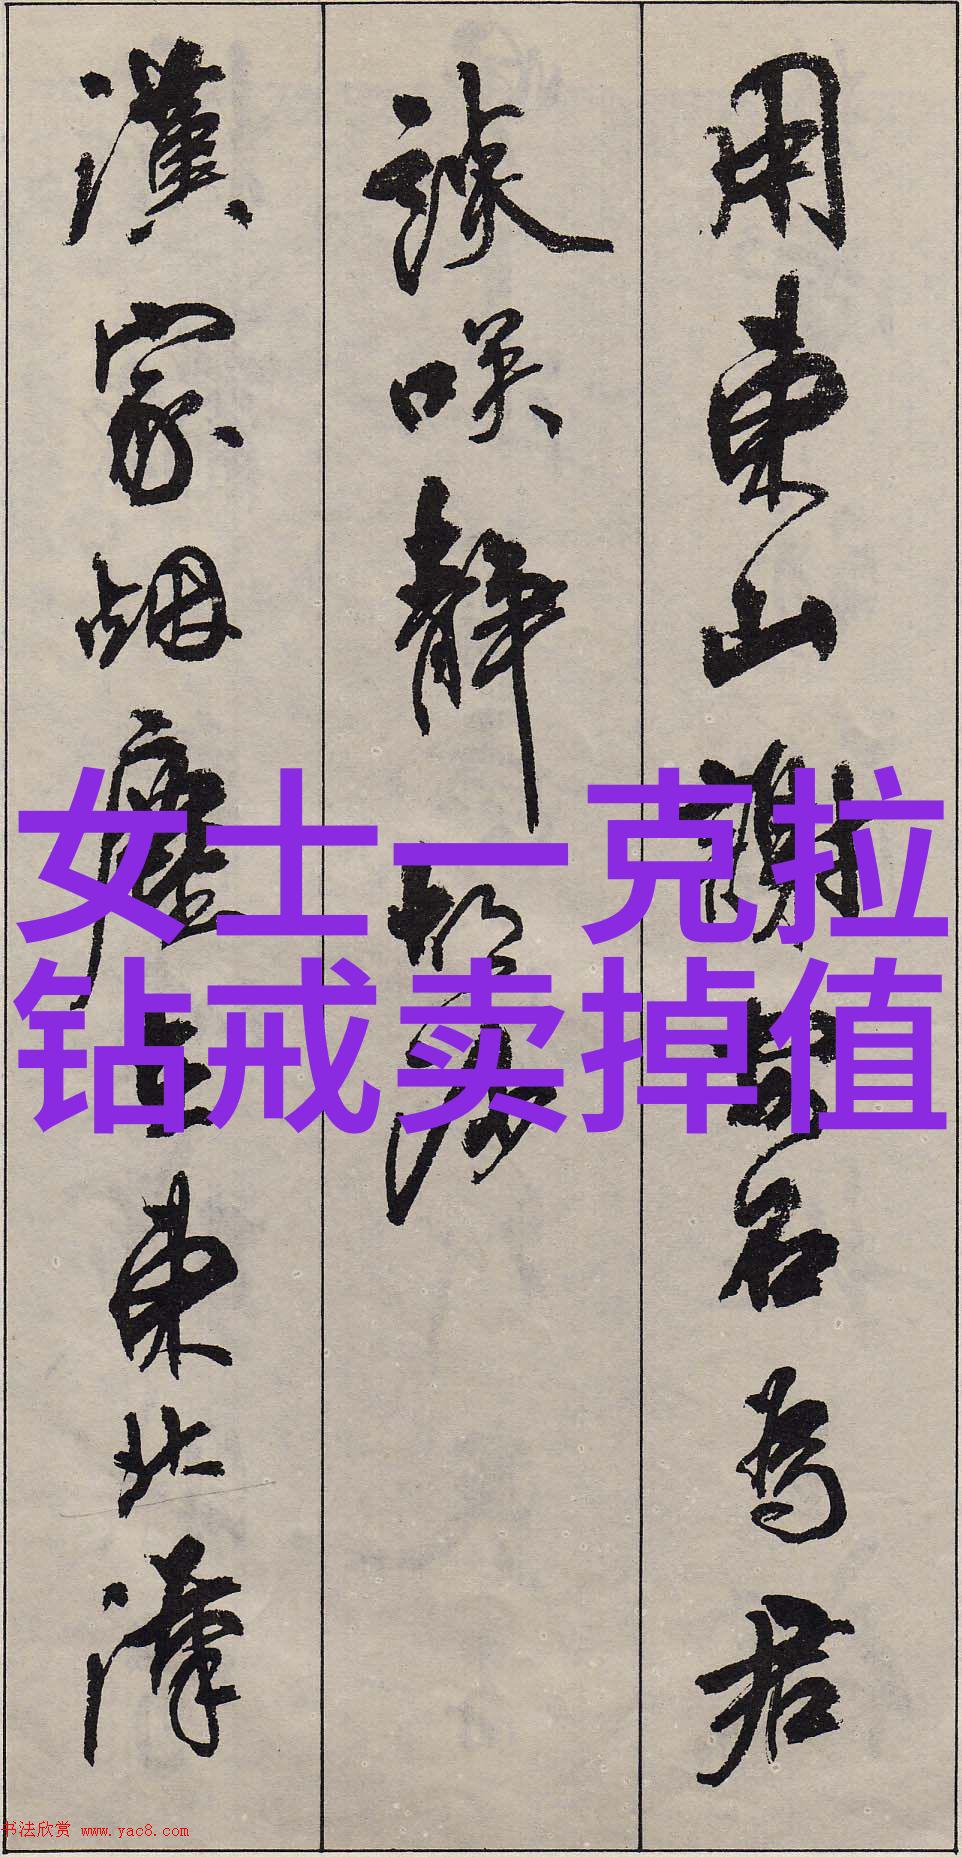 用東山謝安石為君
談咲静胡沙
漢家烟塵在東北漢
女士一克拉
钻戒卖掉值
书法欣赏 www.yac8.com